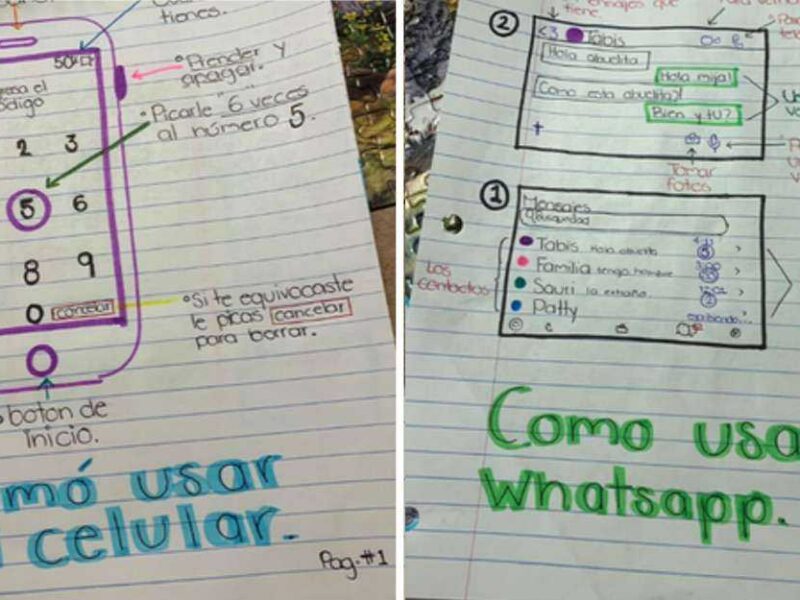 tienes.
50%
Prender y
apagar.
ódigo
Picarle "6 veces"
al número 5.
2 3
5 6
8 9
0 cancelar
Si te equivocaste
le picas cancelar
para borrar.
boton de
Inicio.
mó usar
celular.
Pag. #1
mensajes que
tiene.
2
<3 Tabis
Hola abuelita
Hola mija!
Como esta abuelita?!
Bien y tu?
Tomar
fotos
1
Mensajes
Busquedad
Tabis Hola abuelita
5
Familia tengo hambre
Sauri la extraño.
2
Patty escribiendo...
Los
contactos
Como usa
whatsapp.